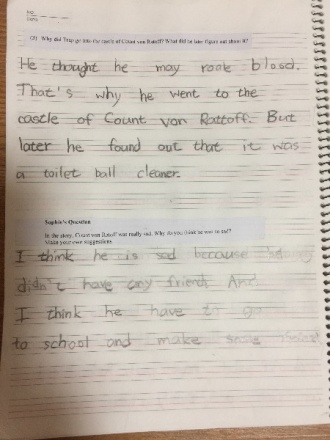 (2) Why did Trap go into the castle of Count von Rattoff? What did he later figure out about it?
He thought he may roak blood.
That's why he went to the
castle of Count von Rattoff. But
later he found out that it was
a toilet ball cleaner.
Sophie's Question
In the story, Count von Rattoff was really sad. Why do you think he was so sad?
Make your own suggestions.
I think he is sad because
didn't have any friend. And
I think he have to go
to school and make some